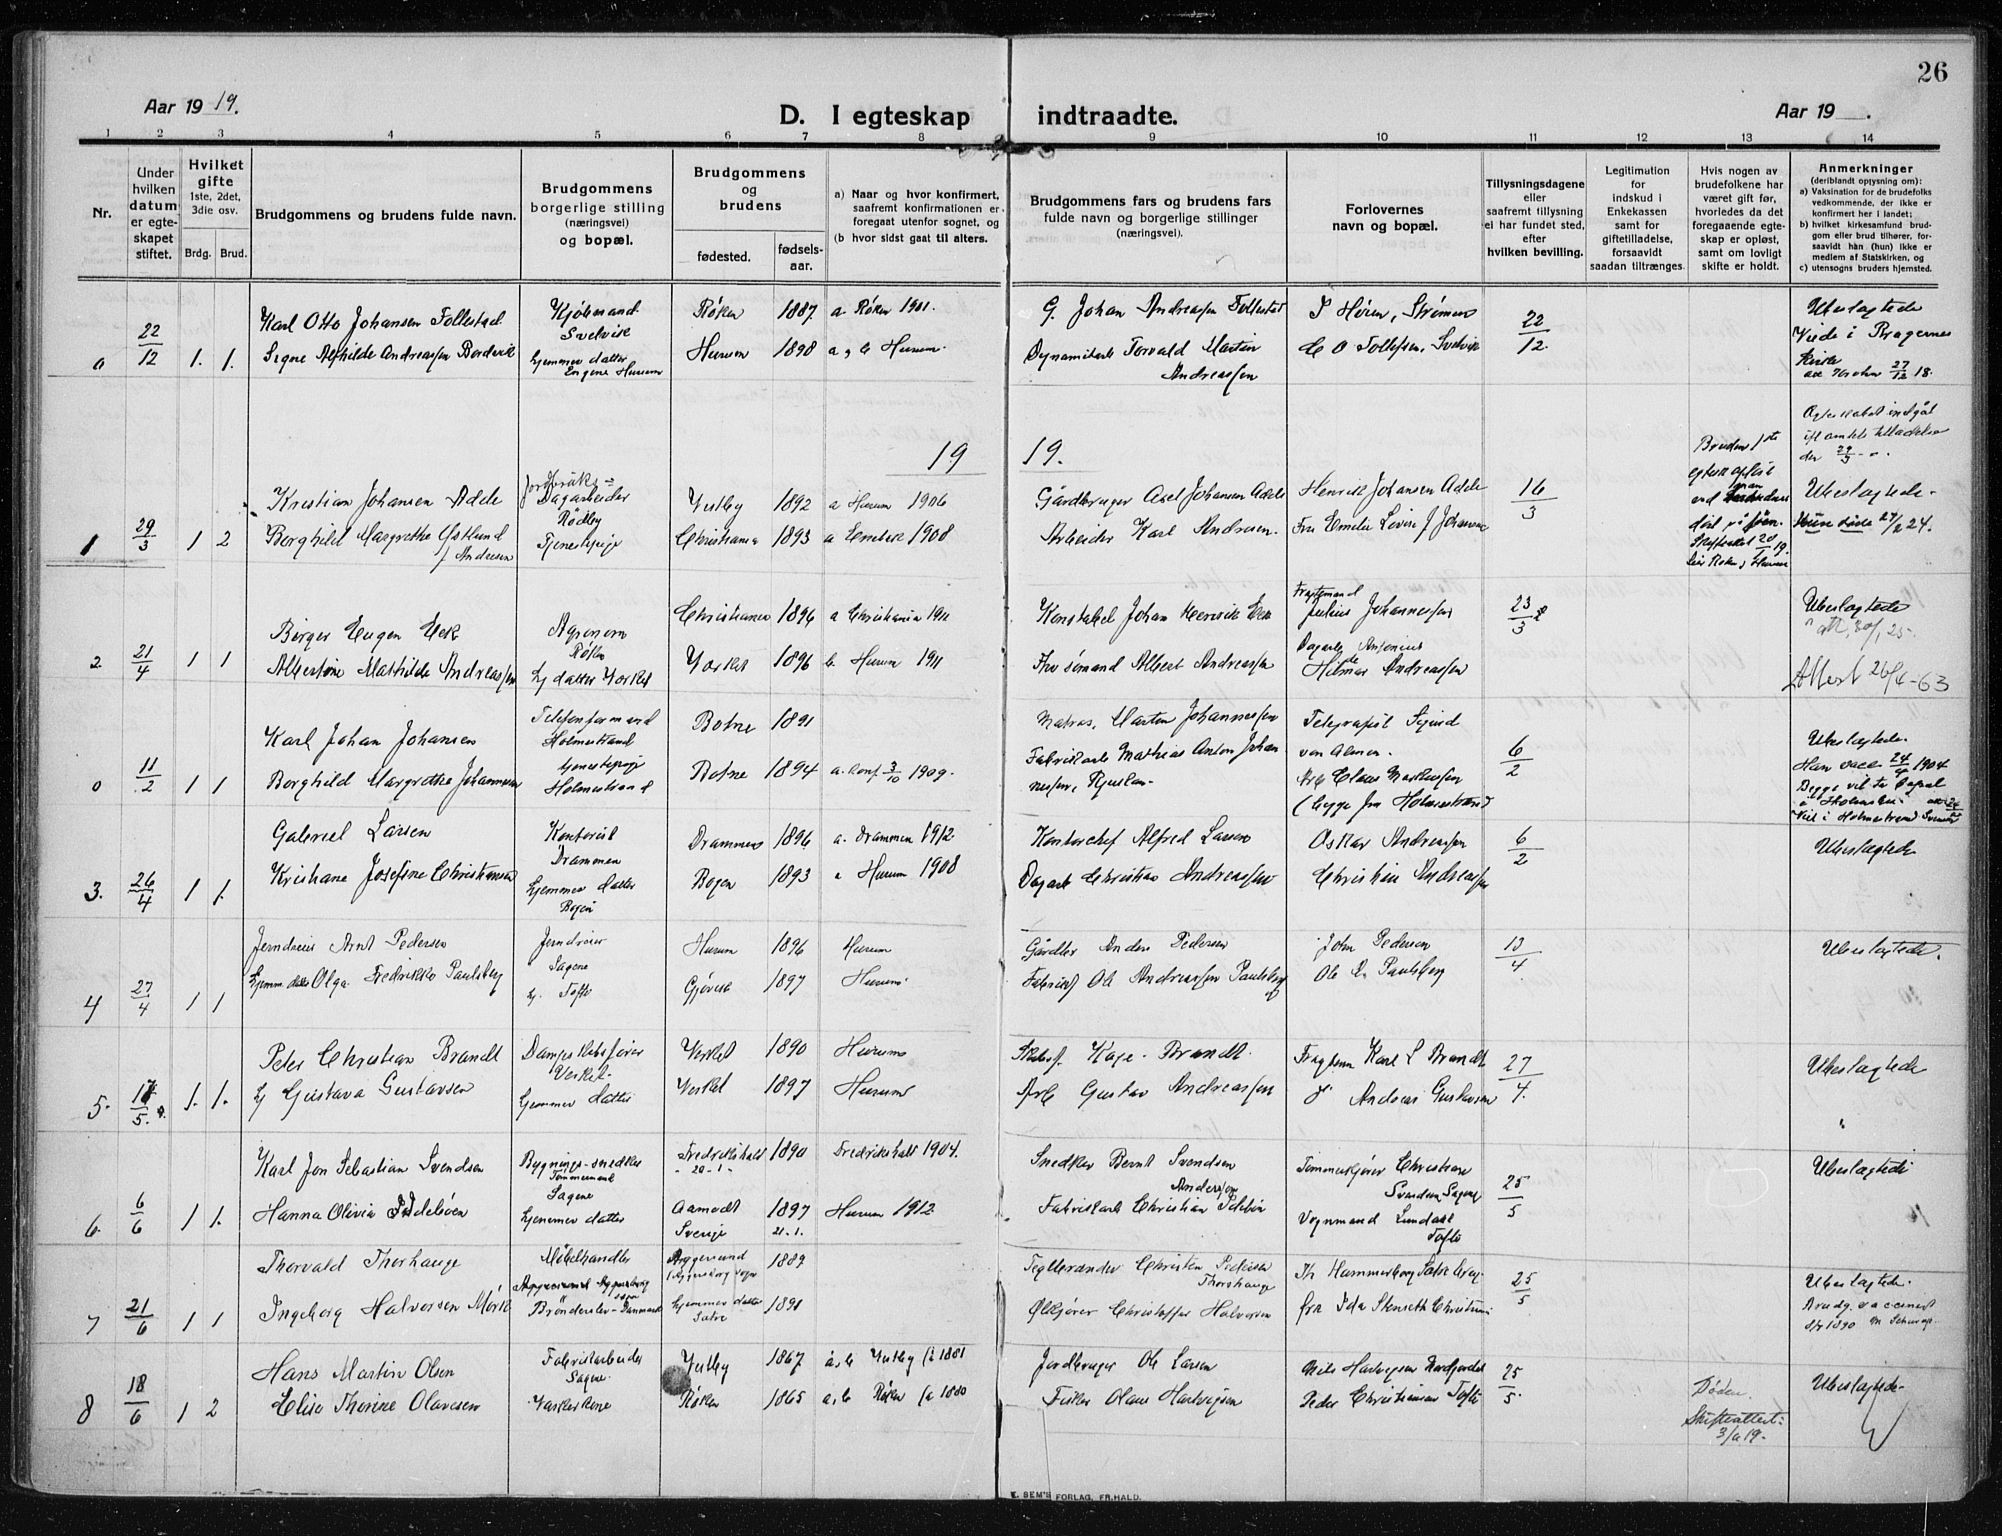 26
Aar 19 19.
D. I egteskap indtraadte.
Aar 19 .
1 2 3 4 5 6 7 8 9 10 11 12 13 14
Nr.
Under hvilken datum er egte-skapet stiftet.
Hvilket gifte
1ste, 2det, 3die osv.
Brdg. Brud.
Brudgommens og brudens fulde navn.
Brudgommens borgerlige stilling
(næringsvei)
og bopæl.
Brudgommens og brudens
fødested.
fødsels-aar.
a) Naar og hvor konfirmert,
saafremt konfirmationen er
foregaat utenfor sognet, og
(b hvor sidst gaat til alters.
Brudgommens fars og brudens fars
fulde navn og borgerlige stillinger
(næringsvei).
Forlovernes
navn og bopæl.
Tillysningsdagene
eller
saafremt tillysning
ei har fundet sted,
efter
hvilken bevilling.
Legitimation
for
indskud i
Enkekassen
samt for
giftetilladelse,
forsaavidt
saadan tiltrænges.
Hvis nogen av
brudefolkene har
været gift før,
hvorledes da det
foregaaende egte-
skap er opløst,
samt om lovligt
skifte er holdt.
Anmerkninger
(deriblandt oplysning om):
a) Vaksination for de brudefolks
vedkommende, der ikke er
konfirmert her i landet;
b) hvilket kirkesamfund brud-
gom eller brud tilhører, for-
saavidt han (hun) ikke er
medlem af Statskirken, og
c) utensogns bruders hjemsted.
0 22/12 1. 1.
Karl Otto Johansen Follestad
Signe Alfhilde Andreassen Bordevik
Kjøbmand
Svelvik
hjemmev datter
Engene Hurum
Røken 1887 a Røken 1901.
Hurum 1898 a, b Hurum.
G. Johan Andreassen Follestad
Dynamitarb Torvald Martin
Andreassen
C O Tollefsen, Svelvik
22/12.
Ubeslægtede
Viede i Bragernes
Kirke
27/12 18.
19 19.
1 29/3 1 2
Kristian Johansen Adde
Borghild Margrethe Østlund
f Andresen
Jordbruks=
Dagarbeider
Rødby
Tjenestepige
Vestby 1892 a Hurum 1906
Christiania 1893 a Enebak 1908
Gårdbruger Axel Johansen Adde
Arbeider Karl Andresen.
Henrik Johansen Adde
Fru Emelie Lovise J Johansen
16/3
Bruden 1ste
egtesk opløst
ved
død på sjøen.
Skifteattest 20/1 19.
Ubeslægtede.
2. 21/4 1 1
Birger Eugen Eek
Albertine Mathilde Andreassen
Agronom
Røken
hj datter Verket
Christiania 1896 a Christiania 1911
Verket 1896 b. Hurum 1911
Konstabel Johan Henrik Eek
Fhv sømand Albert Andreassen
Fragtemand
Julius Johannessen
Dagarb Antonius
Hilmar Andreassen
23/3
Ubeslægtede
Attest 26/6-63
0 11/2 1 1
Karl Johan Johansen
Borghild Margrethe Johannesen
Telefonformand
Holmestrand
tjenestepige
Holmestrand
Botne 1891
Botne 1894 a. konf. 3/10 1909.
Matros, Martin Johannessen
Fabrikarb Mathias Anton Johan
nessen,
Telegrafist Sigurd
von Almen.
Arb Claus Markussen
(begge fra Holmestrand)
6/2
Ubeslægtede.
Han vacc 24/4 1904
3. 26/4 1 1.
Gabriel Larsen
Kristiane Josefine Christiansen
Kontorist
Drammen
hjemmev datter
Bogen
Drammen 1896 a. Drammen 1912
Bogen 1893 " Hurum 1908
Kontorchef Alfred Larsen
Dagarb Christian Andreassen
Oskar Andreassen
Christian Andreassen
6/2
Ubeslægtede
4 27/4 1 1
Jerndreier Arnt Pedersen
hjemm datter Olga Fredrikke Paulsberg
Jerndreier
Sagene
hj. Tofte
Hurum 1896 Hurum
Gjøvik 1897 Hurum
Gårdbr Anders Pedersen
Fabrikf Ole Andreassen Paulsberg
John Pedersen
Ole En Paulsberg
13/4
Ubeslægtede.
5. 17/5. 1. 1.
Peter Christian Brandt
hj Gustava Gustavsen
Dampskibsfører
Verket.
hjemmev datter
Verket 1890 Hurum
Verket 1897 Hurum
Skibsf. Kage Brandt.
Arb Gustav Andreassen
Fragtem Karl L Brandt
Andreas Gustavsen
27/4.
Ubeslægtede
6. 6/6 1 1.
Karl Jon Sebastian Svendsen
Hanna Olivia Idebøen
Bygnings-snedker
Tømmermand
Sagene
hjemmev datter
Fredrikshald 1890 Fredrikshald 1904.
20-1
Aamodt 1897 Hurum 1912
Sverige 21-1.
Snedker Bernt Svendsen
Anderssen
Fabrikarb Christian Idebøen
Tømmerkjører Christian
Svendsen Sagene
Vognmand Lundahl
Tofte
25/5
Ubeslægtede
7 21/6 1 1
Thorvald Thorhauge
Ingeborg Halvorsen Mørk
Møbelhandler
Brønderslev-Danmark
Aggersund 1889
hjemmev datter 1891
Sætre
Teglbrænder Christen Pedersen
Thorshauge
Ølkjører Christoffer Halvorsen
Th Hammerborg Sætre Brug
fru Ida Stenseth Christiania
25/5
Ubeslægtede.
Brudg. vaccinert
8 18/6 1 2
Hans Martin Olsen
Elise Thorine Olavesen
Fabrikarbeider
Sagene.
Verket
Vestby 1867 a, b Vestby 1881
Røken 1865 a, b Røken 1880
Jordbruger Ole Larsen
Fisker Olaus Hartvigsen
Nils Hartvigsen Nordfjordet
Peder Christiansen Tofte
25/5.
Døden.
Skifteattest:
3/6 19.
Ubeslægtede.
E. SEM'S FORLAG, FR.HALD.